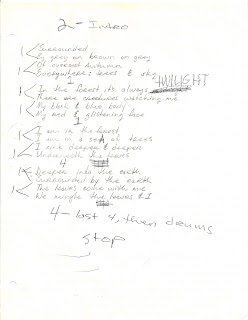 2 - Intro
1 Surrounded
By grey on brown on grey
Of autumn
Everywhere: trees & sky
1
In the forest it's always TWILIGHT
1 There are creatures watching me
1 My black & blue body
My red & glistening face
1
1 I am in the forest
I am in a sea of trees
1 I sink deeper & deeper
Underneath the leaves
4
1 Deeper into the earth
Surrounded by the earth
1 The trees some with me
We mingle the trees & I
4 - last 4, then drums
STOP